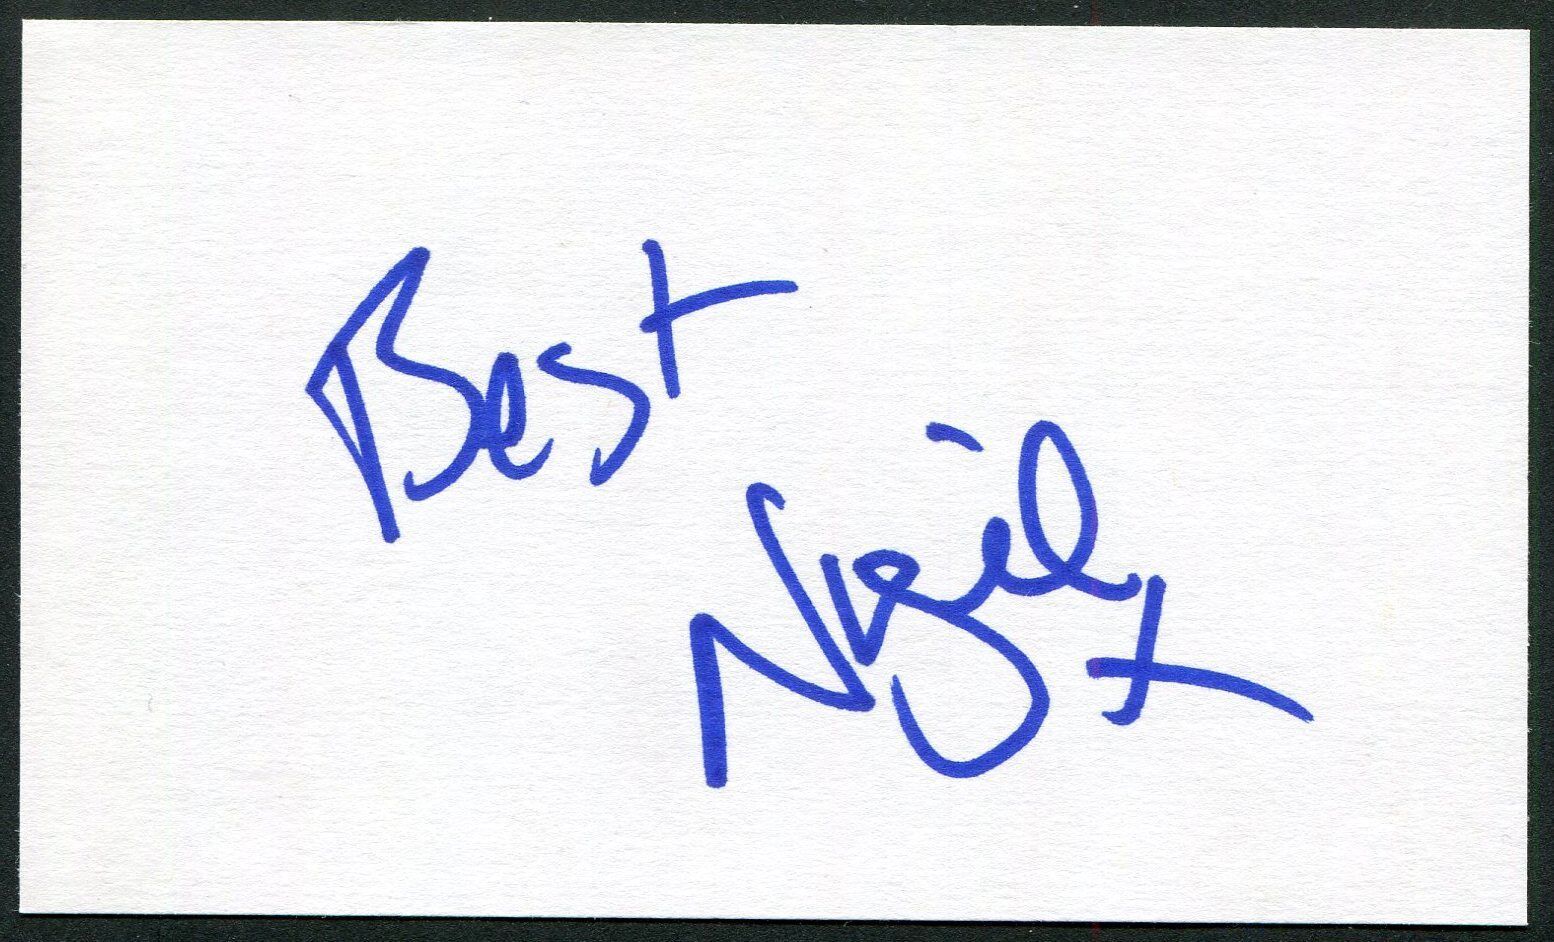 Best
Nigel x